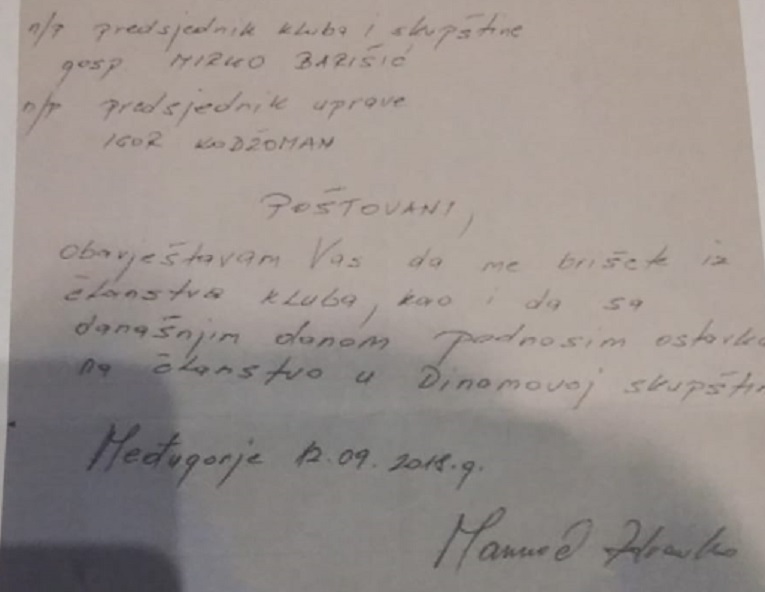 n/p predsjednik kluba i skupštine
gosp MIRKO BARIŠIĆ
n/p predsjednik uprave
IGOR KODŽOMAN
POŠTOVANI,
obavještavam Vas da me brišete iz
članstva kluba, kao i da sa
današnjim danom podnosim ostavku
na članstvo u Dinamovoj skupštin
Međugorje 12.09.2018.g.
Mamić Zdravko